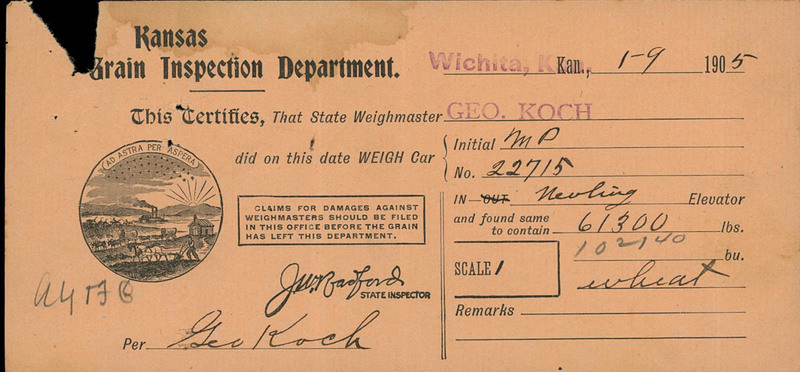 Kansas
Grain Inspection Department.
Wichita, Kan., 1-9 1905
This Certifies, That State Weighmaster GEO. KOCH
did on this date WEIGH Car
Initial MP
No. 22715
AD ASTRA PER ASPERA
CLAIMS FOR DAMAGES AGAINST
WEIGHMASTERS SHOULD BE FILED
IN THIS OFFICE BEFORE THE GRAIN
HAS LEFT THIS DEPARTMENT.
IN OUT Elevator
and found same
to contain 61300 lbs.
102140 bu.
SCALE 1
wheat
J.W. Radford
STATE INSPECTOR
Remarks
Per Geo Koch